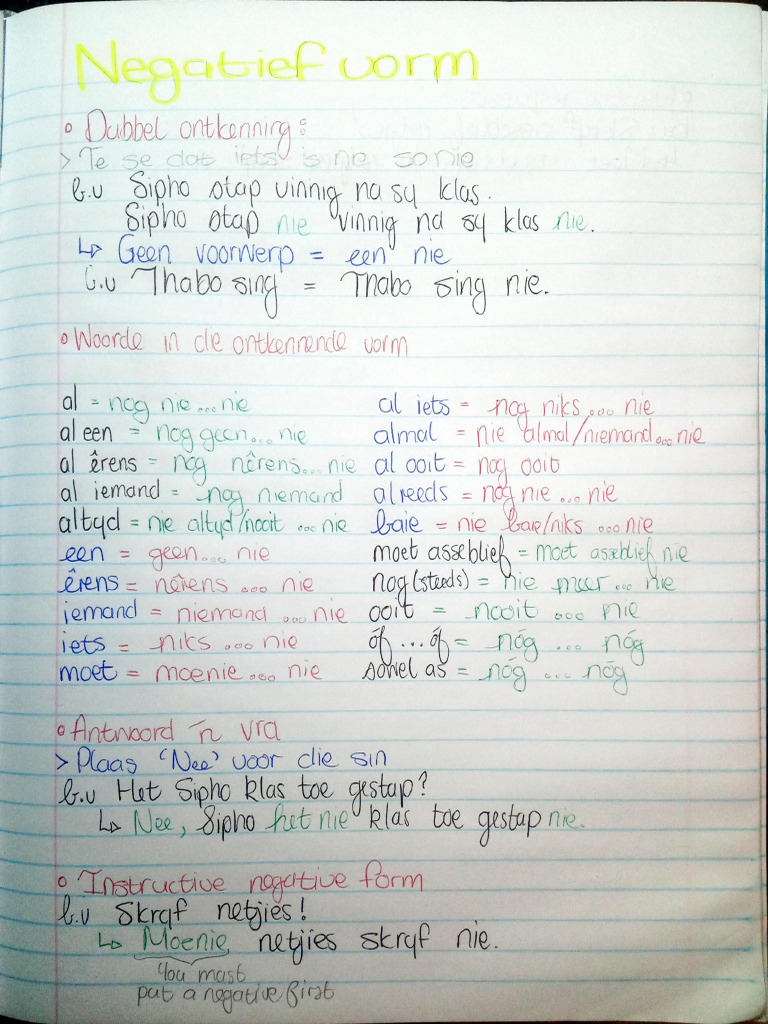 Negatief vorm
• Dubbel ontkenning:
> Te se dat iets is nie so nie
b.v Sipho stap vinnig na sy klas.
Sipho stap nie vinnig na sy klas nie.
↳ Geen voorwerp = een nie
b.v Thabo sing = Thabo sing nie.
• Woorde in die ontkennende vorm
al = nog nie...nie
al een = nog geen... nie
al êrens = nog nêrens... nie
al iemand = nog niemand
altyd = nie altyd/nooit ... nie
een = geen... nie
êrens = nêrens ... nie
iemand = niemand ... nie
iets = niks ... nie
moet = moenie... nie
al iets = nog niks ... nie
almal = nie almal/niemand... nie
al ooit = nog ooit
alreeds = nog nie ... nie
baie = nie baie/niks ... nie
moet asseblief = moet asseblief nie
nog (steeds) = nie meer ... nie
ooit = nooit ... nie
óf ... óf = nóg ... nóg
sowel as = nóg ... nóg
• Antwoord 'n vra
> Plaas 'Nee' voor die sin
b.v Het Sipho klas toe gestap?
↳ Nee, Sipho het nie klas toe gestap nie.
• Instructive negative form
b.v Skryf netjies!
↳ Moenie netjies skryf nie.
You must
put a negative first